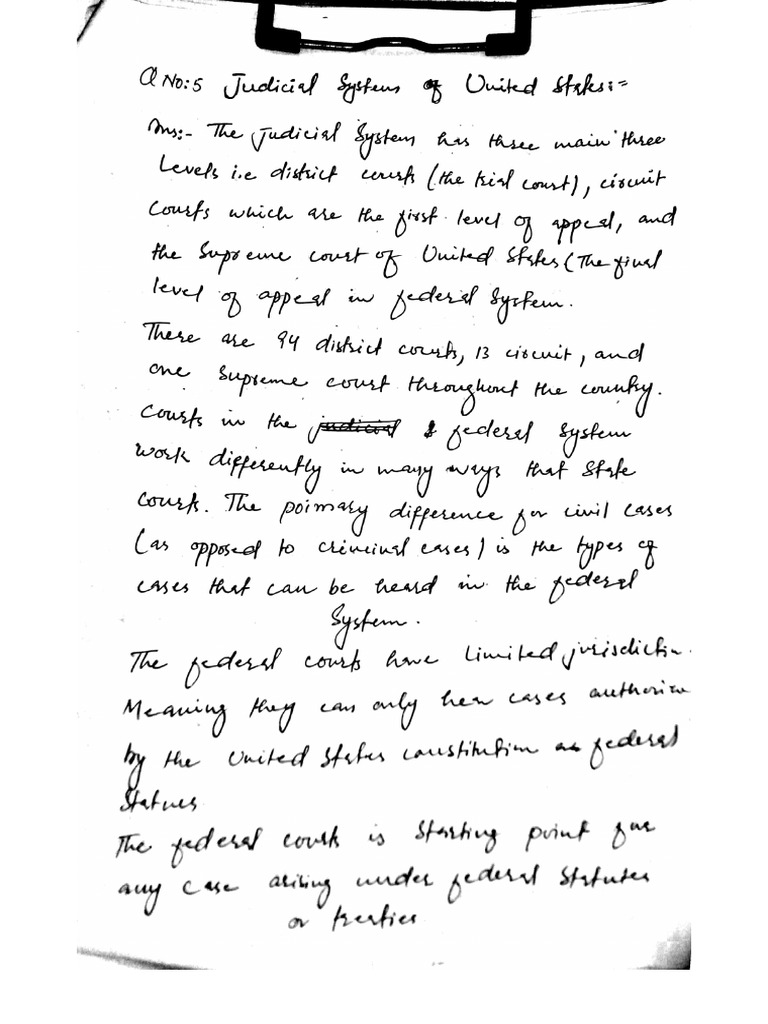 Q No:5 Judicial System of United States:=
Ans:- The Judicial System has three main three
Levels i.e district courts (the trial court), circuit
Courts which are the first level of appeal, and
the Supreme court of United States (The final
level of appeal in federal System.
There are 94 district courts, 13 circuit, and
one Supreme court throughout the country.
Courts in the judicial & federal System
work differently in many ways that State
courts. The poimary difference for civil cases
(as opposed to criminal cases) is the types of
cases that can be heard in the federal
System.
The federal courts have limited jurisdictin.
Meaning they can only hear cases
by the United States constitution or federal
Statues
The federal courts is starting point for
any case arising under federal Statutes
or treaties